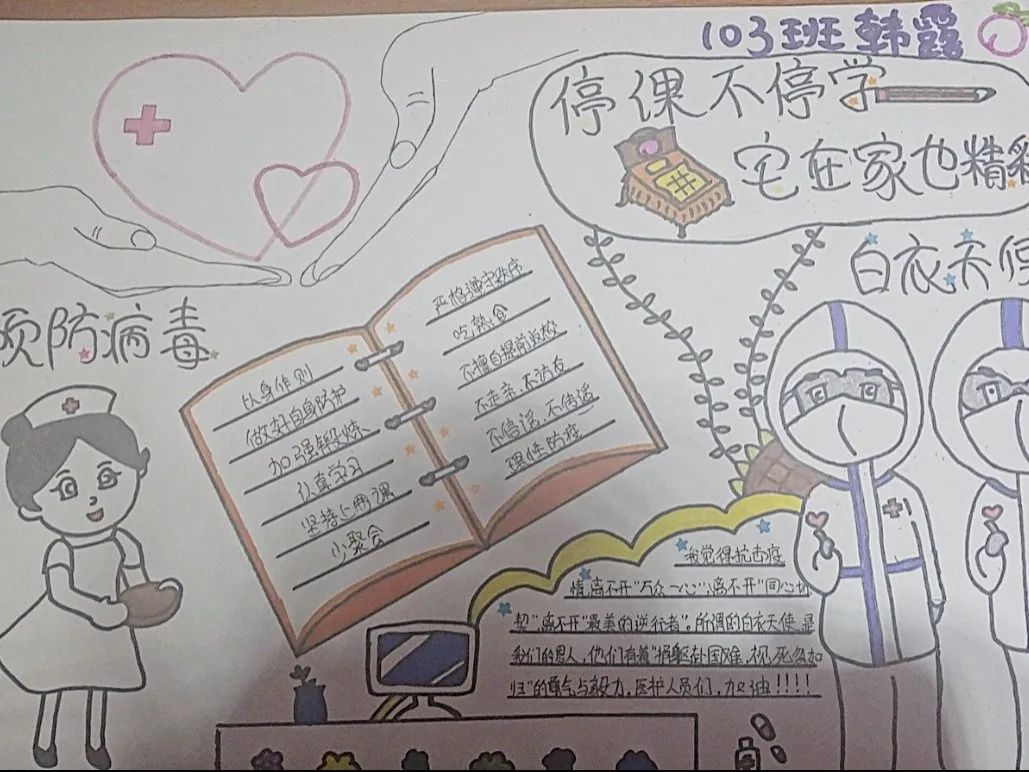 103班韩露
停课不停学
宅在家也精彩
白衣天使
预防病毒
以身作则
做好自身防护
加强锻炼、
认真学习
坚持上网课
少聚会
严格遵守秩序
吃熟食
不擅自提前返校
不走亲，不访友
不信谣，不传谣
理性防疫
我觉得抗击疫
情，离不开"万众一心"，离不开"同心协
契"离不开"最美的逆行者"。所谓的白衣天使，是
我们的恩人，他们有着"捐躯赴国难，视死忽如
归"的勇气与毅力，医护人员们，加油！！！！